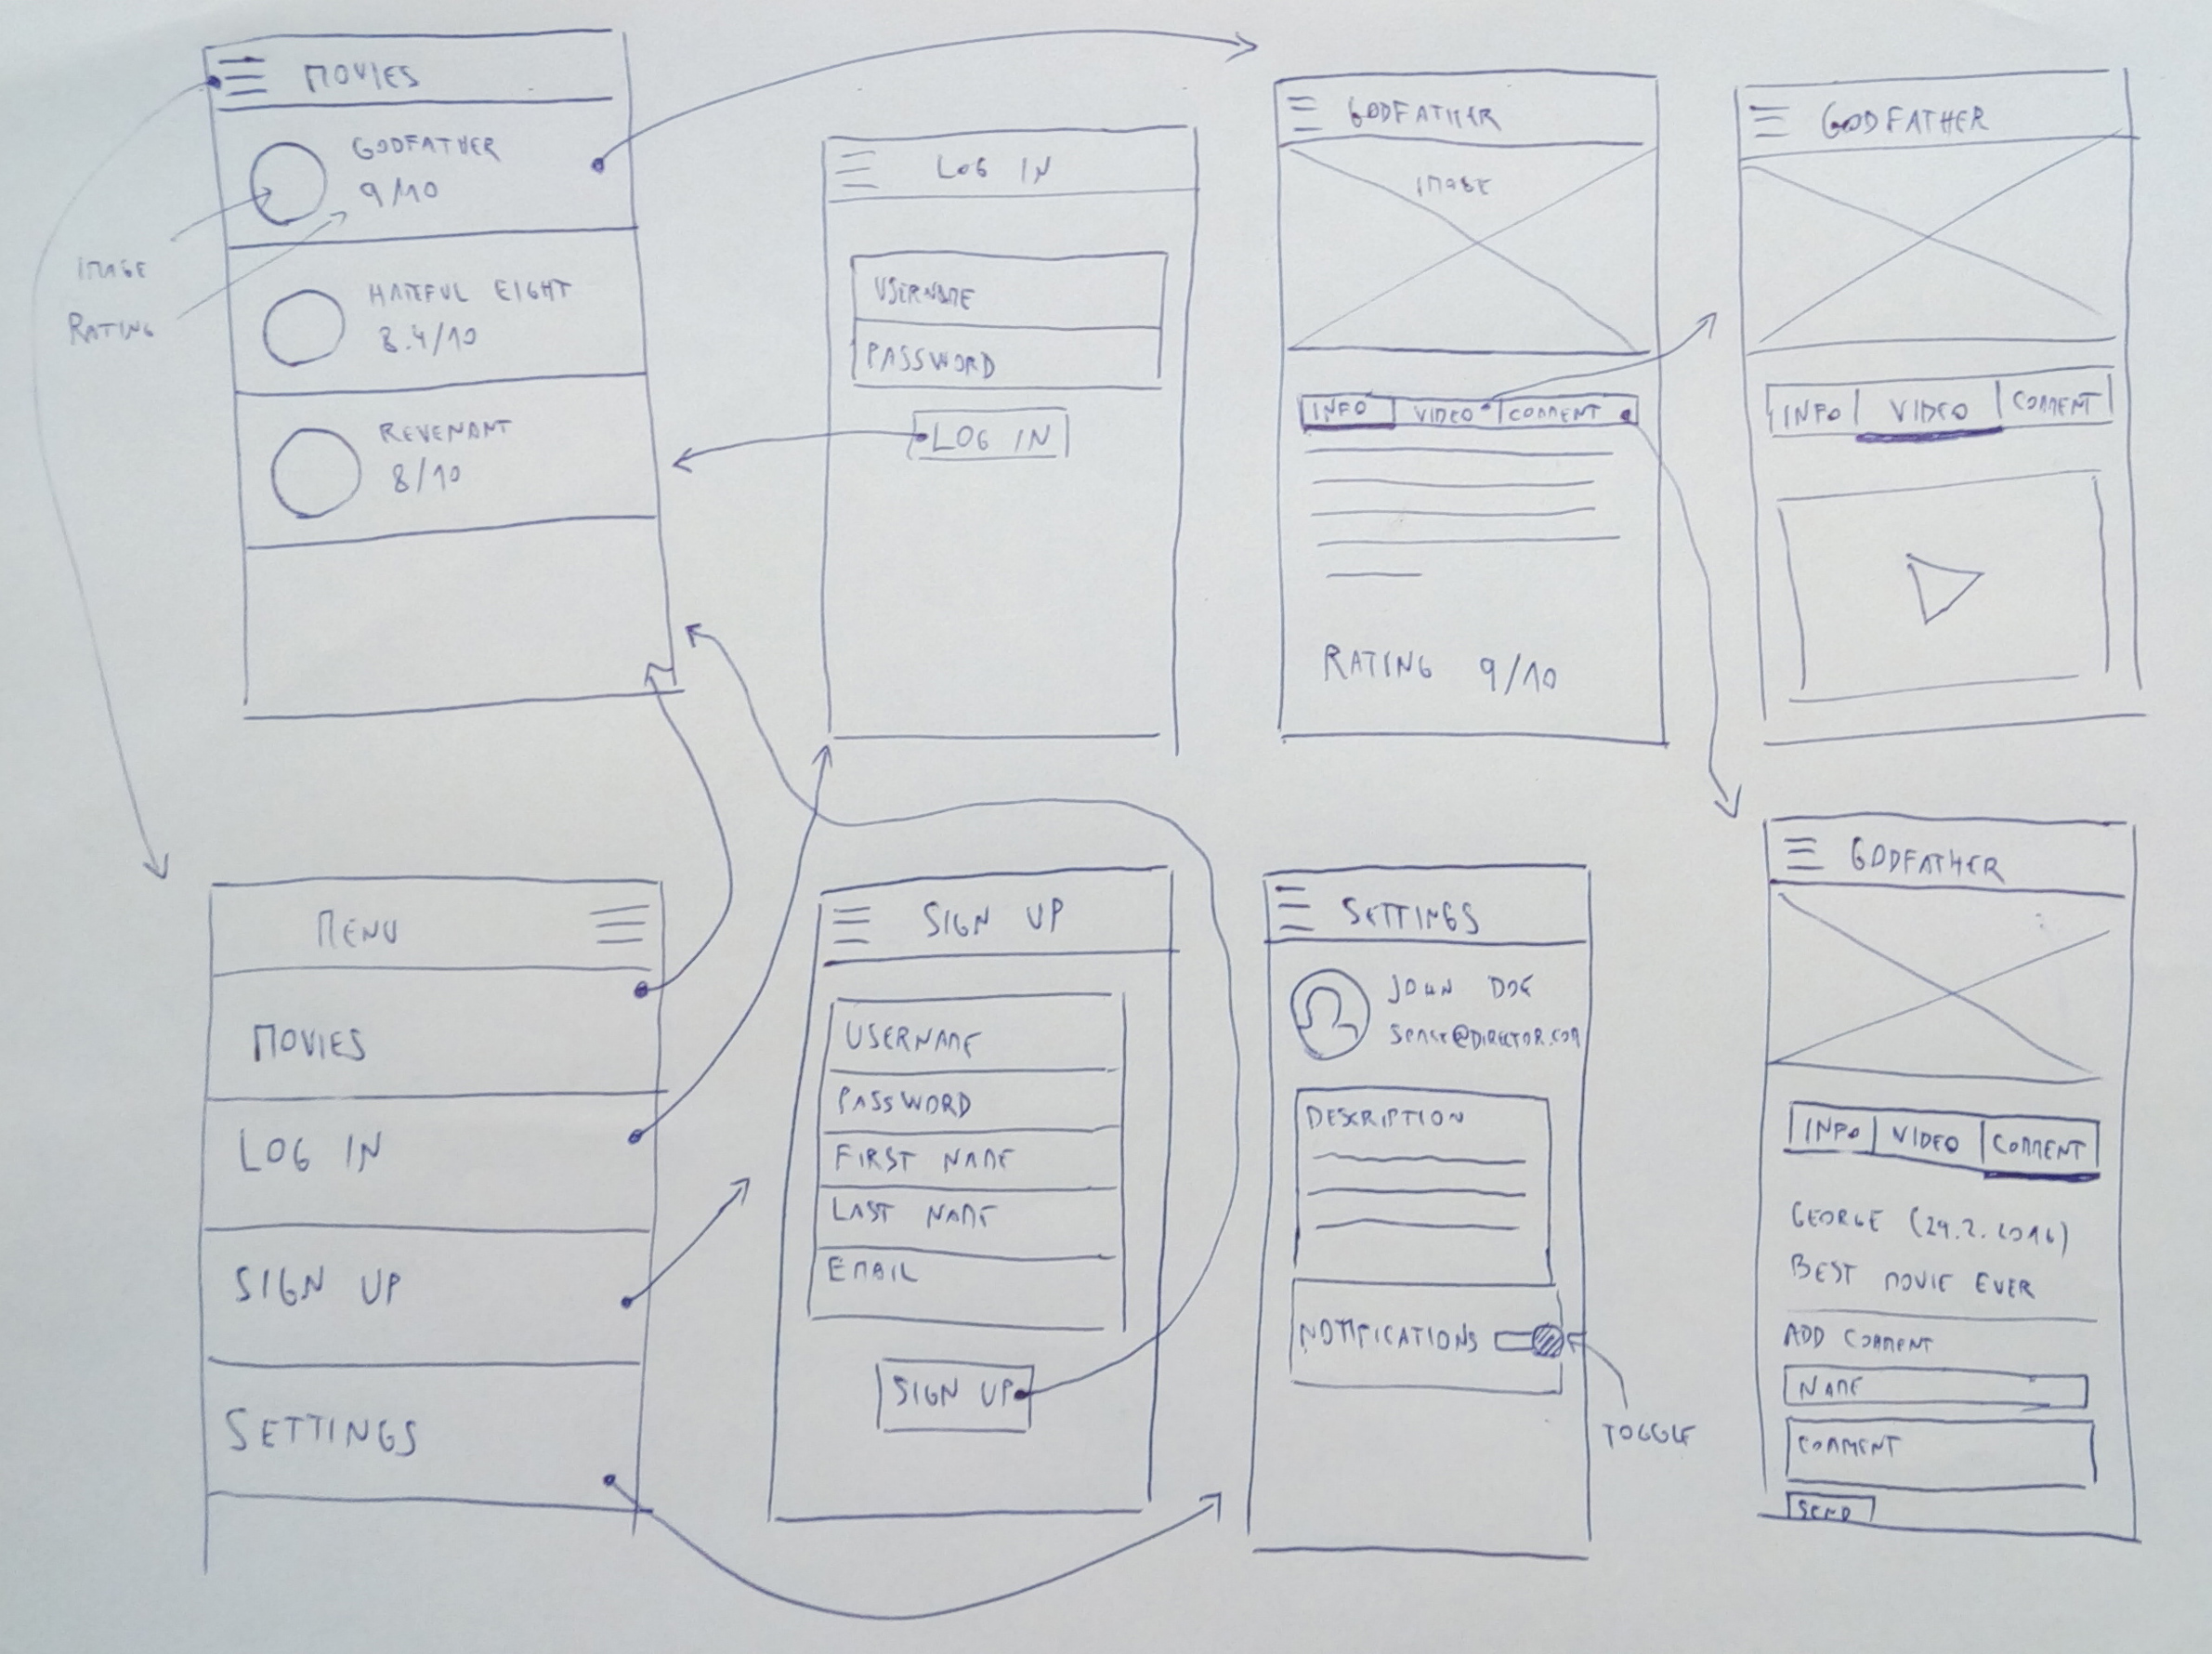 MOVIES
GODFATHER
9/10
IMAGE
RATING
HATEFUL EIGHT
8.4/10
REVENANT
8/10
LOG IN
USERNAME
PASSWORD
LOG IN
GODFATHER
IMAGE
INFO VIDEO COMMENT
RATING 9/10
GODFATHER
INFO VIDEO COMMENT
MENU
MOVIES
LOG IN
SIGN UP
SETTINGS
SIGN UP
USERNAME
PASSWORD
FIRST NAME
LAST NAME
EMAIL
SIGN UP
SETTINGS
JOHN DOE
DESCRIPTION
NOTIFICATIONS
TOGGLE
GODFATHER
INFO VIDEO COMMENT
GEORGE (29.2.2016)
BEST MOVIE EVER
ADD COMMENT
NAME
COMMENT
SEND